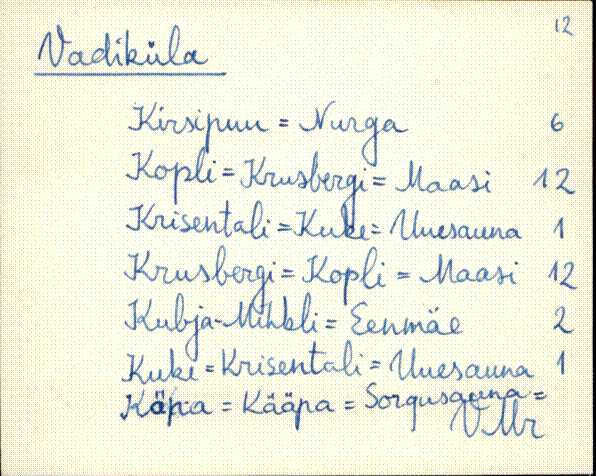 12
Vadiküla
Kirsipuu = Nurga 6
Kopli = Krusbergi = Maasi 12
Krisentali = Kuke = Uuesauna 1
Krusbergi = Kopli = Maasi 12
Kubja-Mihkli = Eenmäe 2
Kuke = Krisentali = Uuesauna 1
Käpa = Kääpa = Sorgusauna =